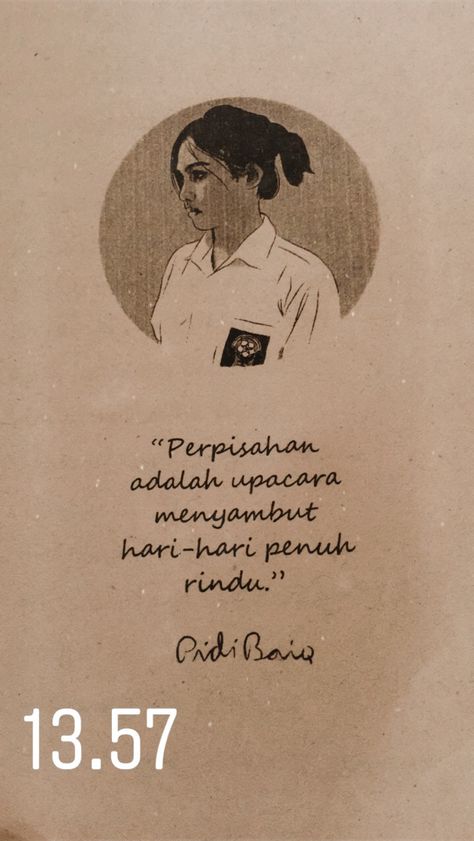 “Perpisahan
adalah upacara
menyambut
hari-hari penuh
rindu.”
Pidi Baiq
13.57